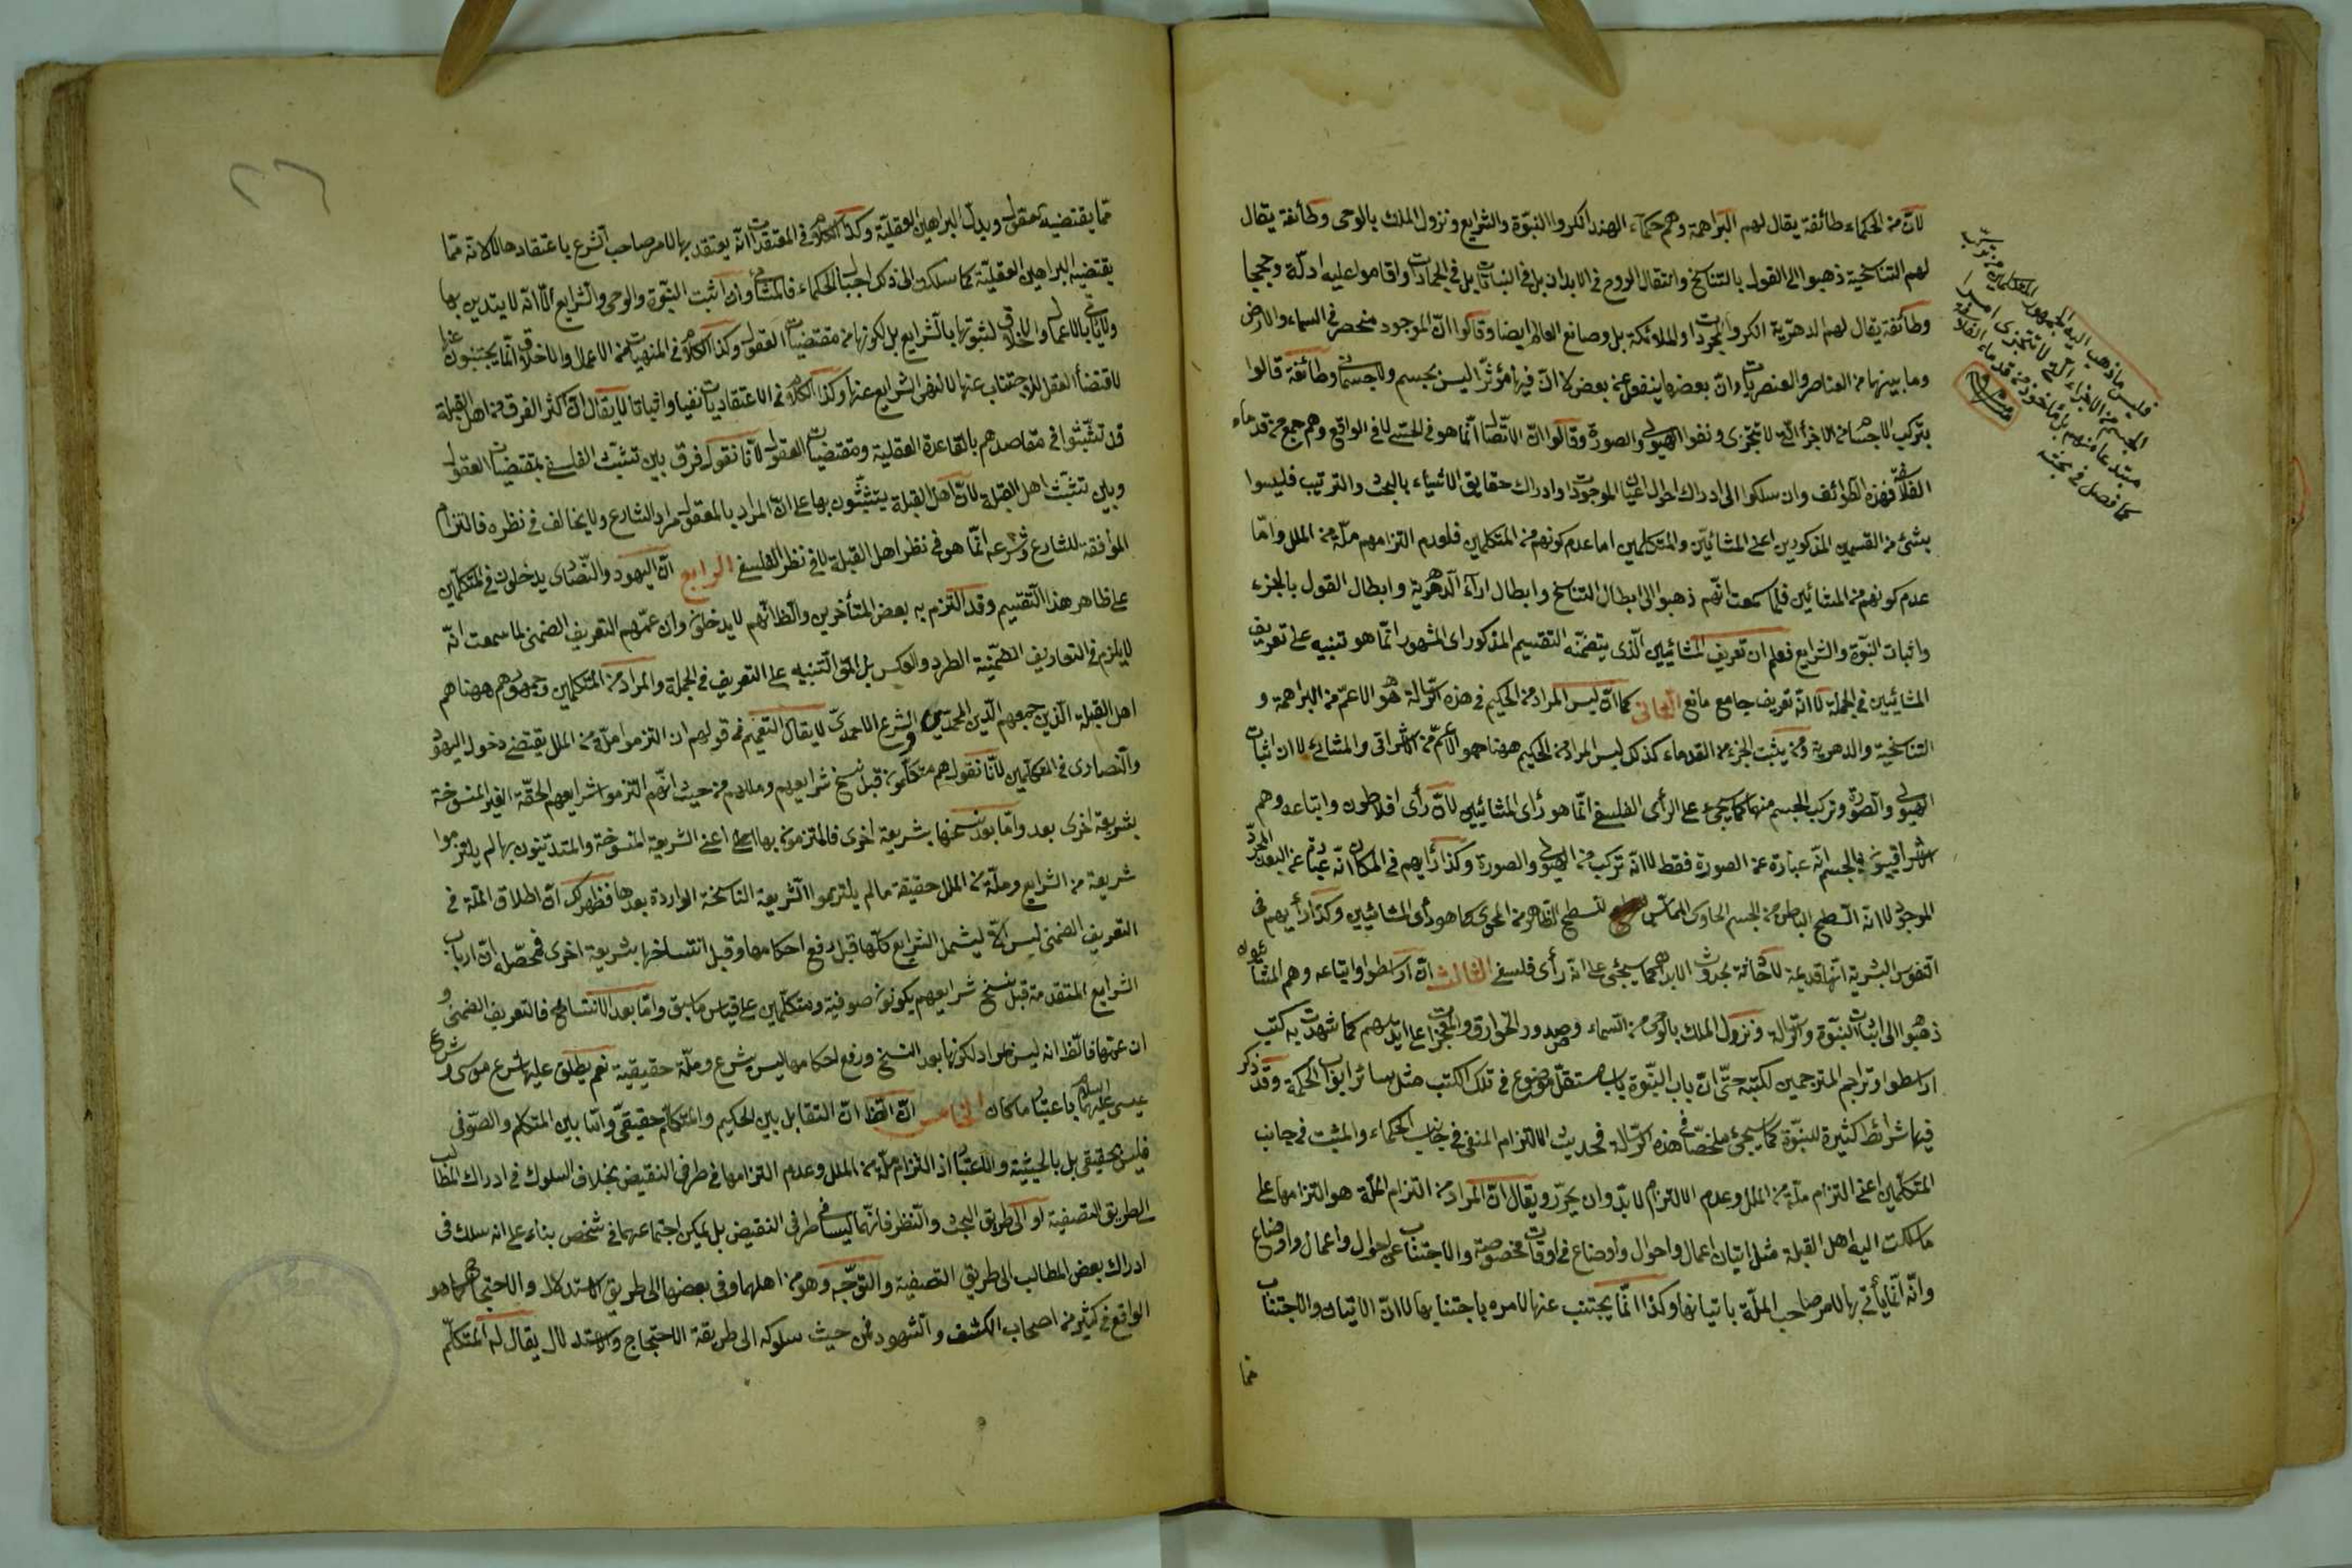 لان من الحكماء طائفة يقال لهم البراهمة وهم حكماء الهند انكروا النبوة والشرايع ونزول الملك بالوحى وطائفة يقال
لهم التناسخية ذهبوا الى القول بالتناسخ وانتقال الروح فى الابدان بل فى النباتات بل فى الجمادات واقاموا عليه ادلة وحججا
وطائفة يقال لهم الدهرية انكروا المجردات والملائكة بل وصانع العالم ايضا وقالوا ان الموجود منحصر فى السماء والارض
وما بينهما من العناصر والعنصريات وان بعضها ينفعل عن بعض لا ان فيها مؤثرا ليس بجسم ولا جسمانى وطائفة قالوا
بتركب الاجسام من الاجزاء التى لا تتجزى ونفوا الهيولى والصورة وقالوا ان الاتصال انما هو فى الحس لا فى الواقع وهم جمع من قدماء
الفلاسفة فهذه الطوائف وان سلكوا الى ادراك احوال اعيان الموجودات وادراك حقايق الاشياء بالبحث والترتيب فليسوا
بشئ من القسمين المذكورين اعنى المشائيين والمتكلمين اما عدم كونهم من المتكلمين فلعدم التزامهم ملة من الملل واما
عدم كونهم من المشائيين فلما سمعت انهم ذهبوا الى ابطال التناسخ وابطال اراء الدهرية وابطال القول بالجزء
واثبات النبوة والشرايع فعلم ان تعريف المشائيين الذى يتضمنه التقسيم المذكور اى المشهور انما هو تنبيه على تعريف
المشائيين فى الجملة لا انه تعريف جامع مانع الثانى كما ان ليس المراد من الحكيم فى هذه الرسالة هو الاعم من البراهمة و
التناسخية والدهرية ومن يثبت الجزء من القدماء كذلك ليس المراد من الحكيم ههنا هو الاعم من الاشراقى والمشائى لان اثبات
الهيولى والصورة وتركب الجسم منهما كما سيجئ على الرأى الفلسفى انما هو رأى المشائيين لان رأى افلاطون واتباعه وهم
الاشراقيون فى الجسم انه عبارة عن الصورة فقط لا انه تركب من الهيولى والصورة وكذا رأيهم فى المكان انه عبارة عن البعد المجرد
الموجود لا انه السطح الباطن من الجسم الحاوى المماس للسطح الظاهر من المحوى كما هو رأى المشائيين وكذا رأيهم فى
النفوس البشرية انها قديمة لا حادثة بحدوث الابدان كما سيجئ على انه رأى فلسفى الثالث ان ارسطو واتباعه وهم المشاؤن
ذهبوا الى اثبات النبوة والرسالة ونزول الملك بالوحى من السماء وصدور الخوارق والمعجزات على ايديهم كما شهدت به كتب
ارسطو وتراجم المترجمين لكتبه حتى ان باب النبوة باب مستقل موضوع فى تلك الكتب مثل سائر ابواب الحكمة وقد ذكر
فيها شرائط كثيرة للنبوة كما سيجئ ملخصا فى هذه الرسالة فحديث الالتزام المنفى فى جانب الحكماء والمثبت فى جانب
المتكلمين اعنى التزام ملة من الملل وعدم الالتزام لا بد وان يحرر ويقال ان المراد من التزام الملة هو التزامها على
ما سلكت اليه اهل القبلة مثل اتيان اعمال واحوال واوضاع فى اوقات مخصوصة والاجتناب عن احوال واعمال واوضاع
وانه انما يأتى بها لامر صاحب الملة باتيانها وكذا انما يجتنب عنها لامره باجتنابها لا ان الاتيان والاجتناب
مما
فليس ما ذهب اليه جمهور المتكلمين من تركب
الجسم من الاجزاء التى لا تتجزى امرا
مبتدعا منهم بل مأخوذ من قدماء الفلاسفة
كما فصل فى بحثه
مما يقتضيه عقول ويدل البراهين العقلية وكذا الكلام فى المعتقدات انه يعتقد بها لامر صاحب الشرع باعتقادها لا لانه مما
يقتضيه البراهين العقلية كما سلكوا الى ذلك الحكماء فالمشائى وان اثبت النبوة والوحى والشرايع الا انه لا يتدين بها
ولا يأتى بالاعمال والاخلاق لثبوتها بالشرايع بل لكونها من مقتضيات العقول وكذا الكلام فى المنهيات من الاعمال والاخلاق انما يجتنبون عنها
لاقتضاء العقل للاجتناب عنها لا لنهى الشرايع عنها وكذا الكلام فى الاعتقاديات نفيا واثباتا لا يقال ان اكثر الفرق من اهل القبلة
قد تشبثوا فى مقاصدهم بالقاعدة العقلية ومقتضيات العقول لانا نقول فرق بين تشبث الفلسفى بمقتضيات العقول
وبين تشبث اهل القبلة لان اهل القبلة يتشبثون بها على ان المراد بالمعقول مراد الشارع ولا يخالف فى نظره فالتزام
الموافقة للشارع وشرعه انما هو فى نظر اهل القبلة لا فى نظر الفلسفى الرابع ان اليهود والنصارى يدخلون فى المتكلمين
على ظاهر هذا التقسيم وقد التزم به بعض المتأخرين والظ انهم لا يدخلون وان عمهم التعريف الضمنى لما سمعت انه
لا يلزم فى التعاريف الضمنية الطرد والعكس بل التنبيه على التعريف فى الجملة والمراد من المتكلمين وجمهورهم ههنا هم
اهل القبلة الذين جمعهم الدين المحمدى والشرع الاحمدى لا يقال التعميم فى قولهم ان التزموا ملة من الملل يقتضى دخول اليهود
والنصارى فى المتكلمين لانا نقول هم متكلمون قبل نسخ شرايعهم ومللهم من حيث انهم التزموا شرايعهم الحقة الغير المنسوخة
بشريعة اخرى بعد واما بعد نسخها بشريعة اخرى فالملتزمون بها اعنى الشريعة المنسوخة والمتدينون بها لم يلتزموا
شريعة من الشرايع وملة من الملل حقيقة ما لم يلتزموا الشريعة الناسخة الواردة بعدها فظهر لك ان اطلاق الملة فى
التعريف الضمنى ليس الا ليشمل الشرايع كلها قبل رفع احكامها وقبل انتساخها بشريعة اخرى فمحصله ان ارباب
الشرايع المتقدمة قبل نسخ شرايعهم يكونون صوفية ومتكلمين على قياس ما سبق واما بعد الانتساخ فالتعريف الضمنى و
ان عمها فالظ انه ليس بمراد لكونها بعد النسخ ورفع احكامها ليس بشرع وملة حقيقية نعم يطلق عليها شرع موسى وشرع
عيسى عليهما السلام باعتبار ما كان الخامس ان الظ ان التقابل بين الحكيم والمتكلم حقيقى واما بين المتكلم والصوفى
فليس بحقيقى بل بالحيثية والاعتبار اذ التزام ملة من الملل وعدم التزامها فى طرفى النقيض بخلاف السلوك فى ادراك المطالب
الى طريق التصفية او الى طريق البحث والنظر فانهما ليسا فى طرفى النقيض بل يمكن اجتماعهما فى شخص بناء على انه سلك فى
ادراك بعض المطالب الى طريق التصفية والتوجه وهو من اهلها وفى بعضها الى طريق الاستدلال والاحتجاج كما هو
الواقع فى كثير من اصحاب الكشف والشهود فمن حيث سلوكه الى طريقة الاحتجاج والاستدلال يقال له المتكلم